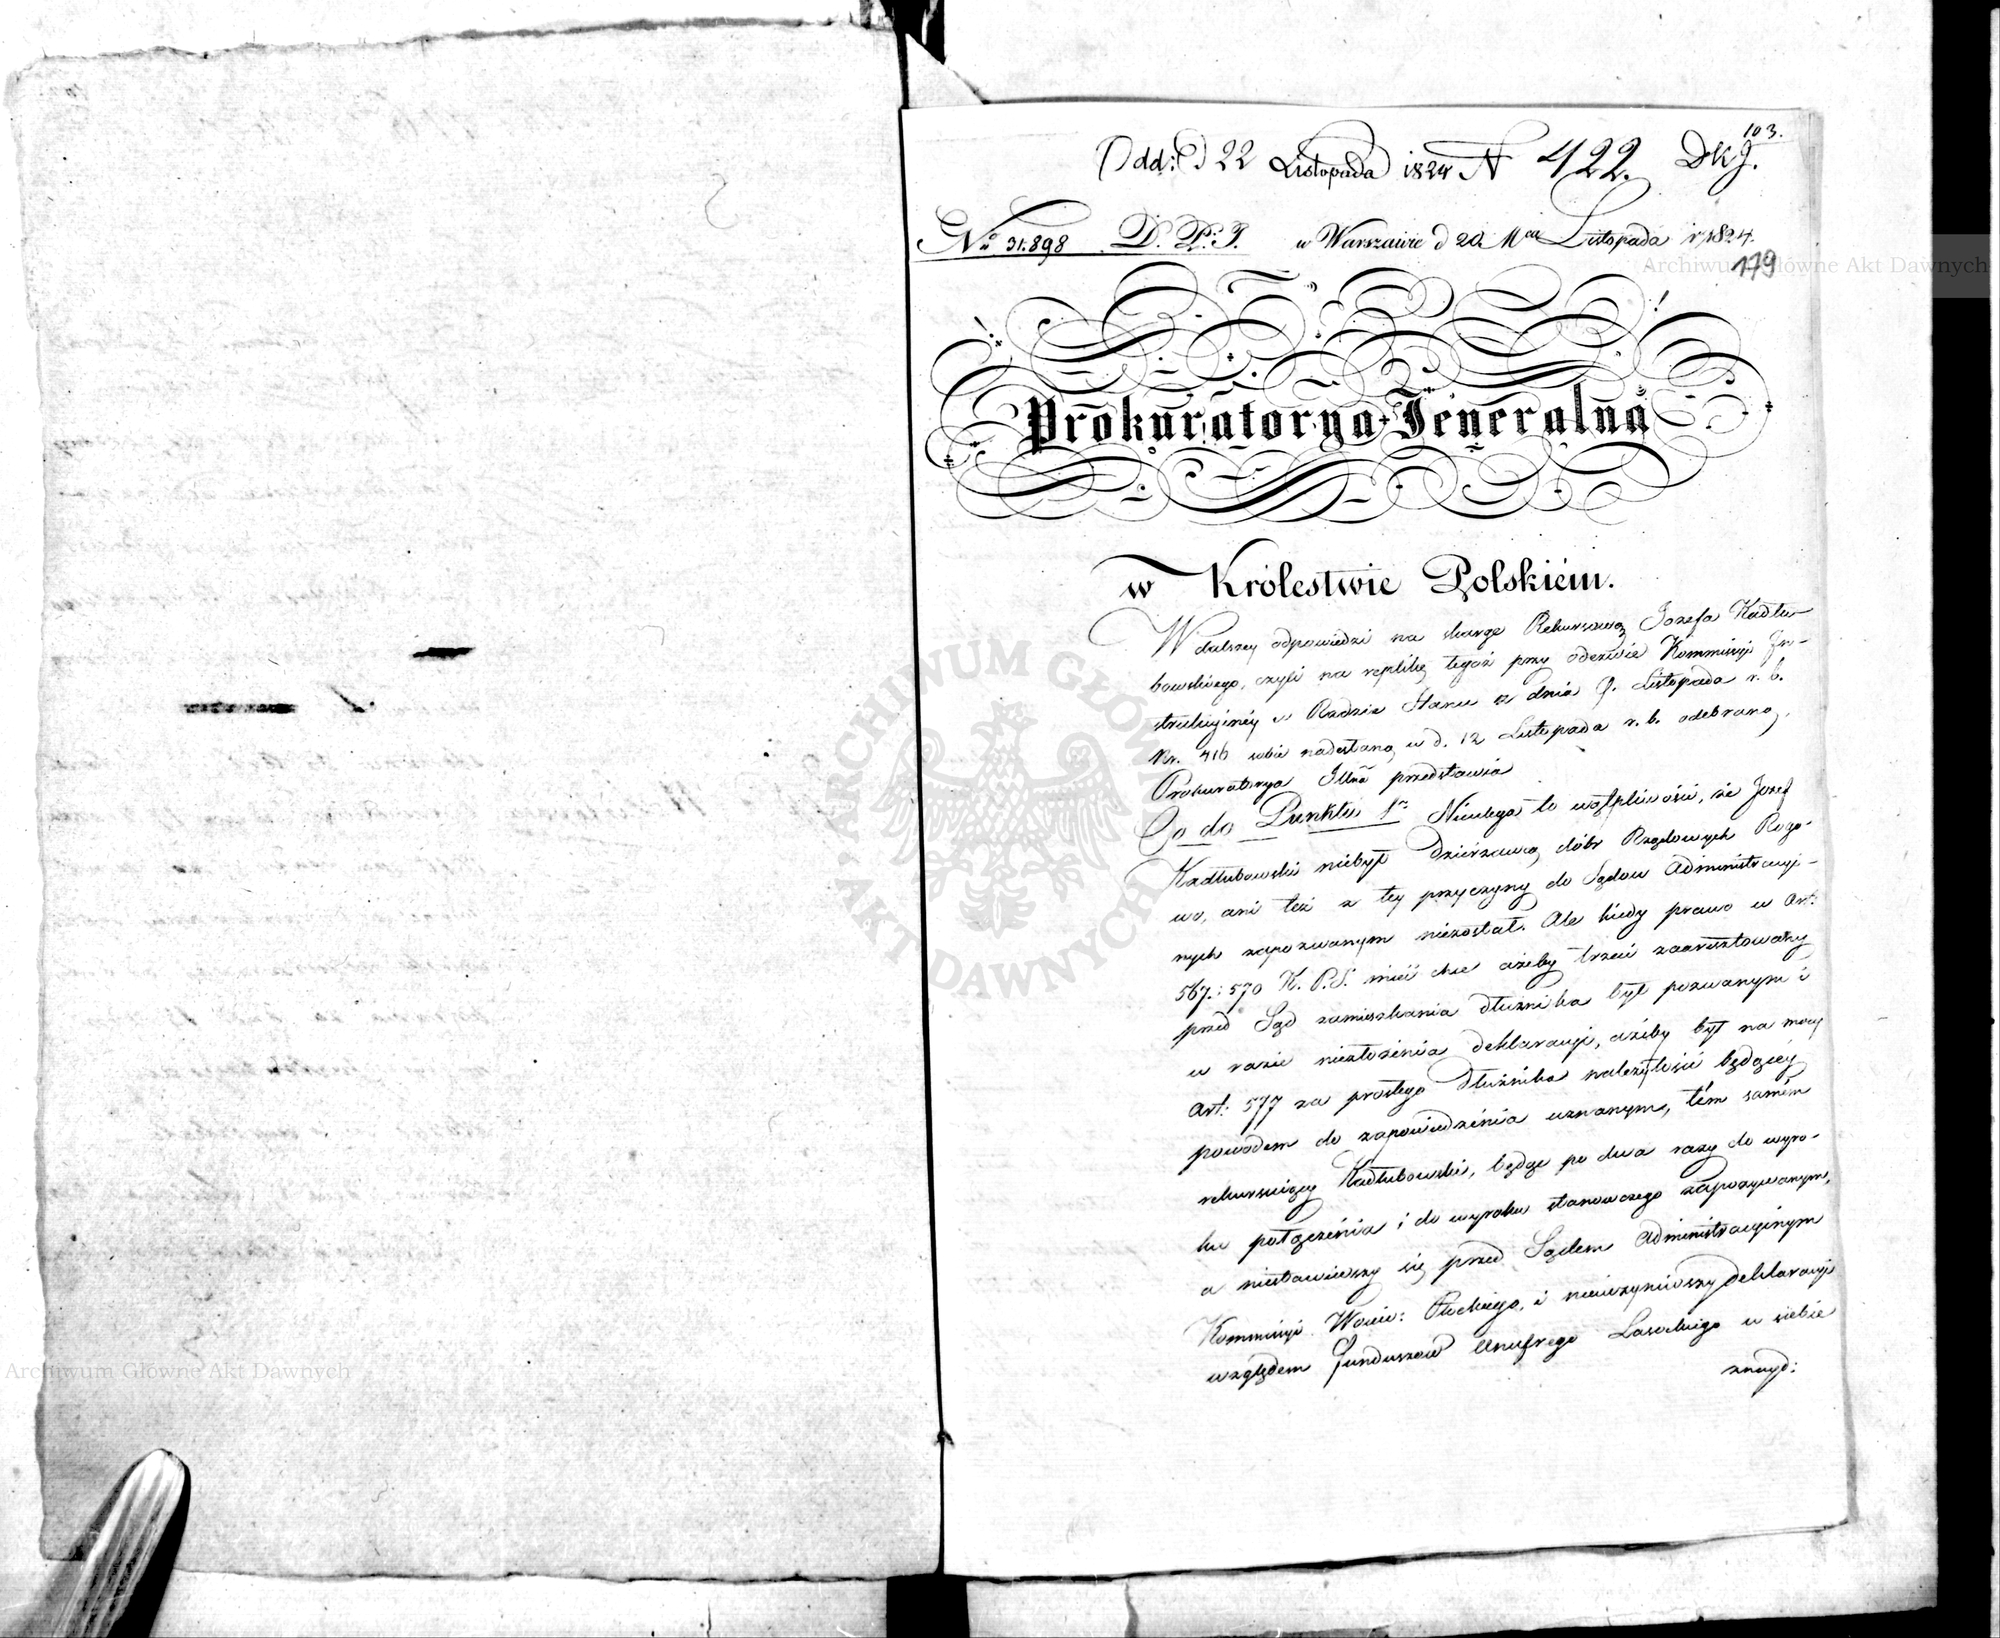 103.
Odd: d 22 Listopada 1824 N 422. DKJ.
No 31.898 D. P. J. w Warszawie d 20 Mca Listopada r. 1824.
179
Prokuratorya Jeneralna
w Królestwie Polskiém.
W dalszey odpowiedzi na skargę Rekursową Jozefa Kadłu-
bowskiego, czyli na replikę tegoż przy odezwie Kommissyi In-
strukcyinéy w Radzie Stanu z dnia 9. Listopada r. b.
Nr. 416 sobie nadesłaną w d. 12 Listopada r. b. odebraną,
Prokuratorya Jllna przedstawia
Co do Punktu 1o Nieulega to wątpliwości, że Jozef
Kadłubowski niebył Dzierżawcą dóbr Rządowych Rogo-
wo, ani też z tey przyczyny do Sądow Administracyi-
nych zapozwanym niezostał. Ale kiedy prawo w Art:
567. i 570 K. P. S. mieć chce ażeby trzeci zaaresztowany
przed Sąd zamieszkania dłużnika był pozwanym i
w razie niezłożenia deklaracyi, ażeby był na mocy
Art: 577 za prostego Dłużnika należytości będącéy
powodem do zapowiedzénia uznanym, tém samém
rekursuiący Kadłubowski, będąc po dwa razy do wyro-
ku połączénia i do wyroku stanowczego zapozywanym,
a niestawiwszy się przed Sądem Administracyinym
Kommissyi Woiew: Płockiego, i nieuczyniwszy deklaracyi
względem funduszów Onufrego Lasockiego u siebie
znayd:
Archiwum Główne Akt Dawnych
Archiwum Główne Akt Dawnych
ARCHIWUM GŁÓWNE AKT DAWNYCH